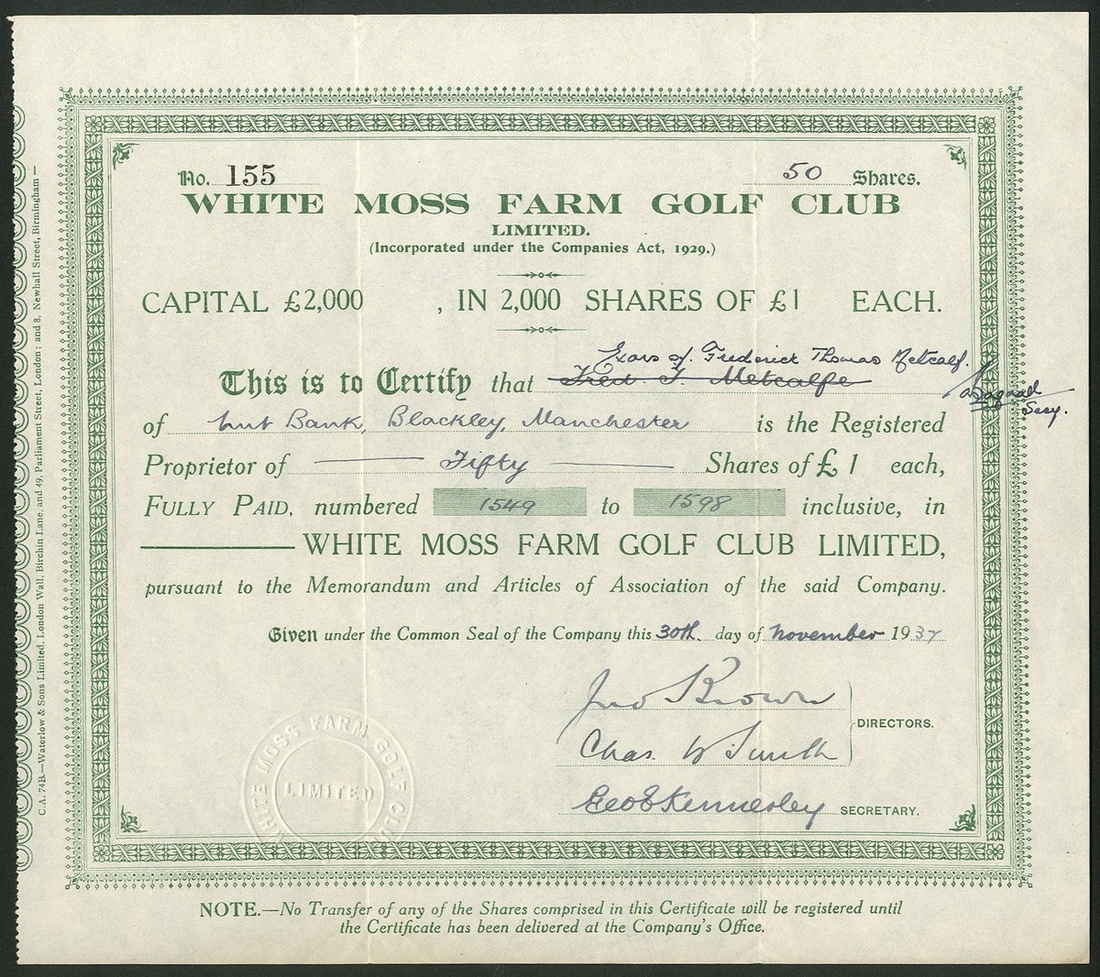 No. 155 50 Shares.
WHITE MOSS FARM GOLF CLUB
LIMITED.
(Incorporated under the Companies Act, 1929.)
CAPITAL £2,000 , IN 2,000 SHARES OF £1 EACH.
Exors of Frederick Thomas Metcalf.
This is to Certify that Fred. T. Metcalfe
Secy.
of Bank, Blackley, Manchester is the Registered
Proprietor of Fifty Shares of £1 each,
FULLY PAID, numbered 1549 to 1598 inclusive, in
WHITE MOSS FARM GOLF CLUB LIMITED,
pursuant to the Memorandum and Articles of Association of the said Company.
Given under the Common Seal of the Company this 30th day of November 1937
Jno Brown
DIRECTORS.
Chas. W Smith
Geo E Kennerley SECRETARY.
WHITE MOSS FARM GOLF CLUB
LIMITED
NOTE.—No Transfer of any of the Shares comprised in this Certificate will be registered until
the Certificate has been delivered at the Company's Office.
C.A. 74B.—Waterlow & Sons Limited, London Wall, Birchin Lane, and 49, Parliament Street, London; and 8, Newhall Street, Birmingham—